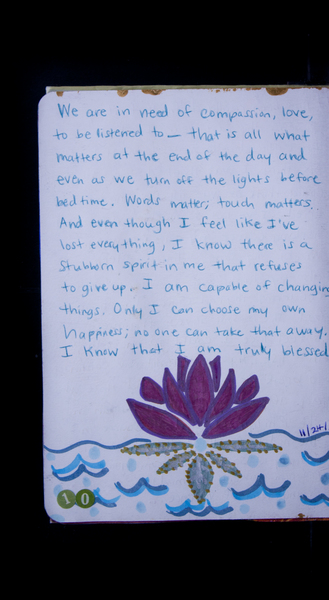 We are in need of compassion, love,
to be listened to — that is all what
matters at the end of the day and
even as we turn off the lights before
bedtime. Words matter; touch matters.
And even though I feel like I've
lost everything, I know there is a
stubborn spirit in me that refuses
to give up. I am capable of changin
things. Only I can choose my own
happiness; no one can take that away.
I know that I am truly blessed
11/24/
10